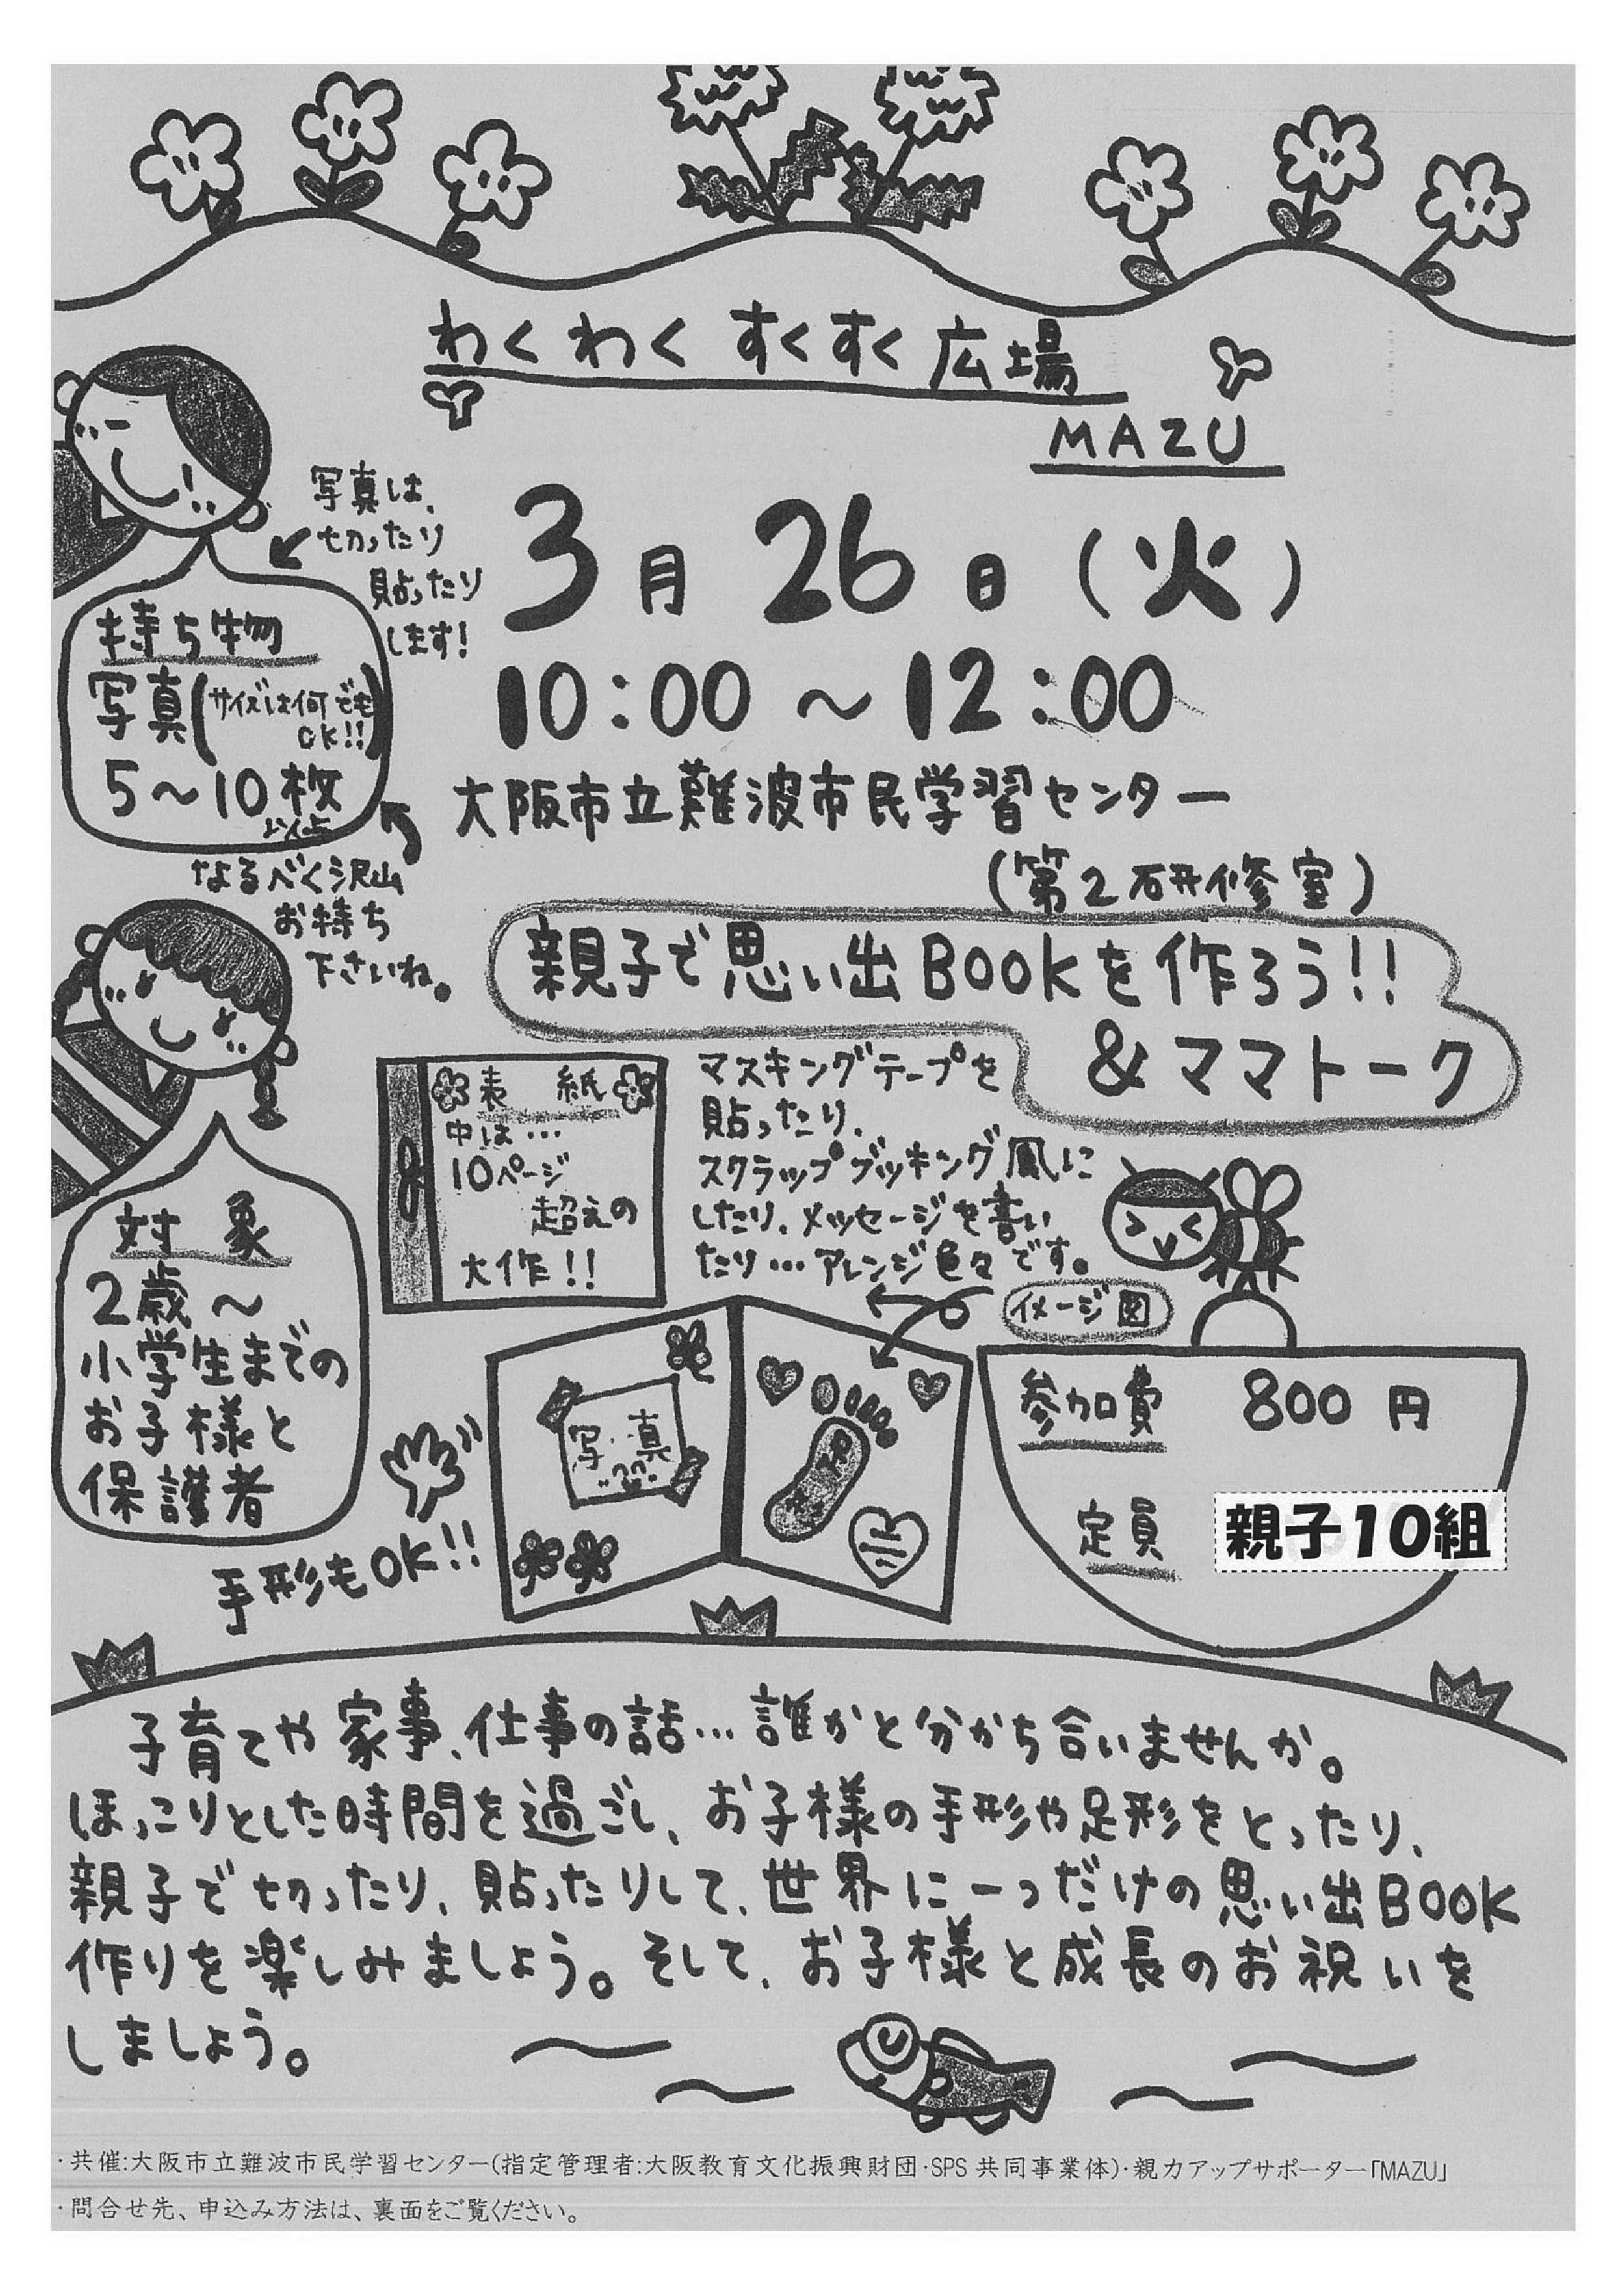 わくわくすくすく広場
MAZU
3月26日(火)
10:00～12:00
大阪市立難波市民学習センター
(第2研修室)
写真は、
切ったり
貼ったり
します!
持ち物
写真(サイズは何でも
OK!!)
5～10枚
以上
なるべく沢山
お持ち
下さいね。
親子で思い出BOOKを作ろう!!
&ママトーク
表 紙
中は…
10ページ
超えの
大作!!
マスキングテープを
貼ったり、
スクラップブッキング風に
したり、メッセージを書い
たり…アレンジ色々です。
イメージ図
対 象
2歳～
小学生までの
お子様と
保護者
手形もOK!!
写真
参加費 800円
定員 親子10組
子育てや家事、仕事の話…誰かと分かち合いませんか。
ほっこりとした時間を過ごし、お子様の手形や足形をとったり、
親子で切ったり、貼ったりして、世界に一つだけの思い出BOOK
作りを楽しみましょう。そして、お子様と成長のお祝いを
しましょう。
・共催:大阪市立難波市民学習センター(指定管理者:大阪教育文化振興財団・SPS共同事業体)・親力アップサポーター「MAZU」
・問合せ先、申込み方法は、裏面をご覧ください。